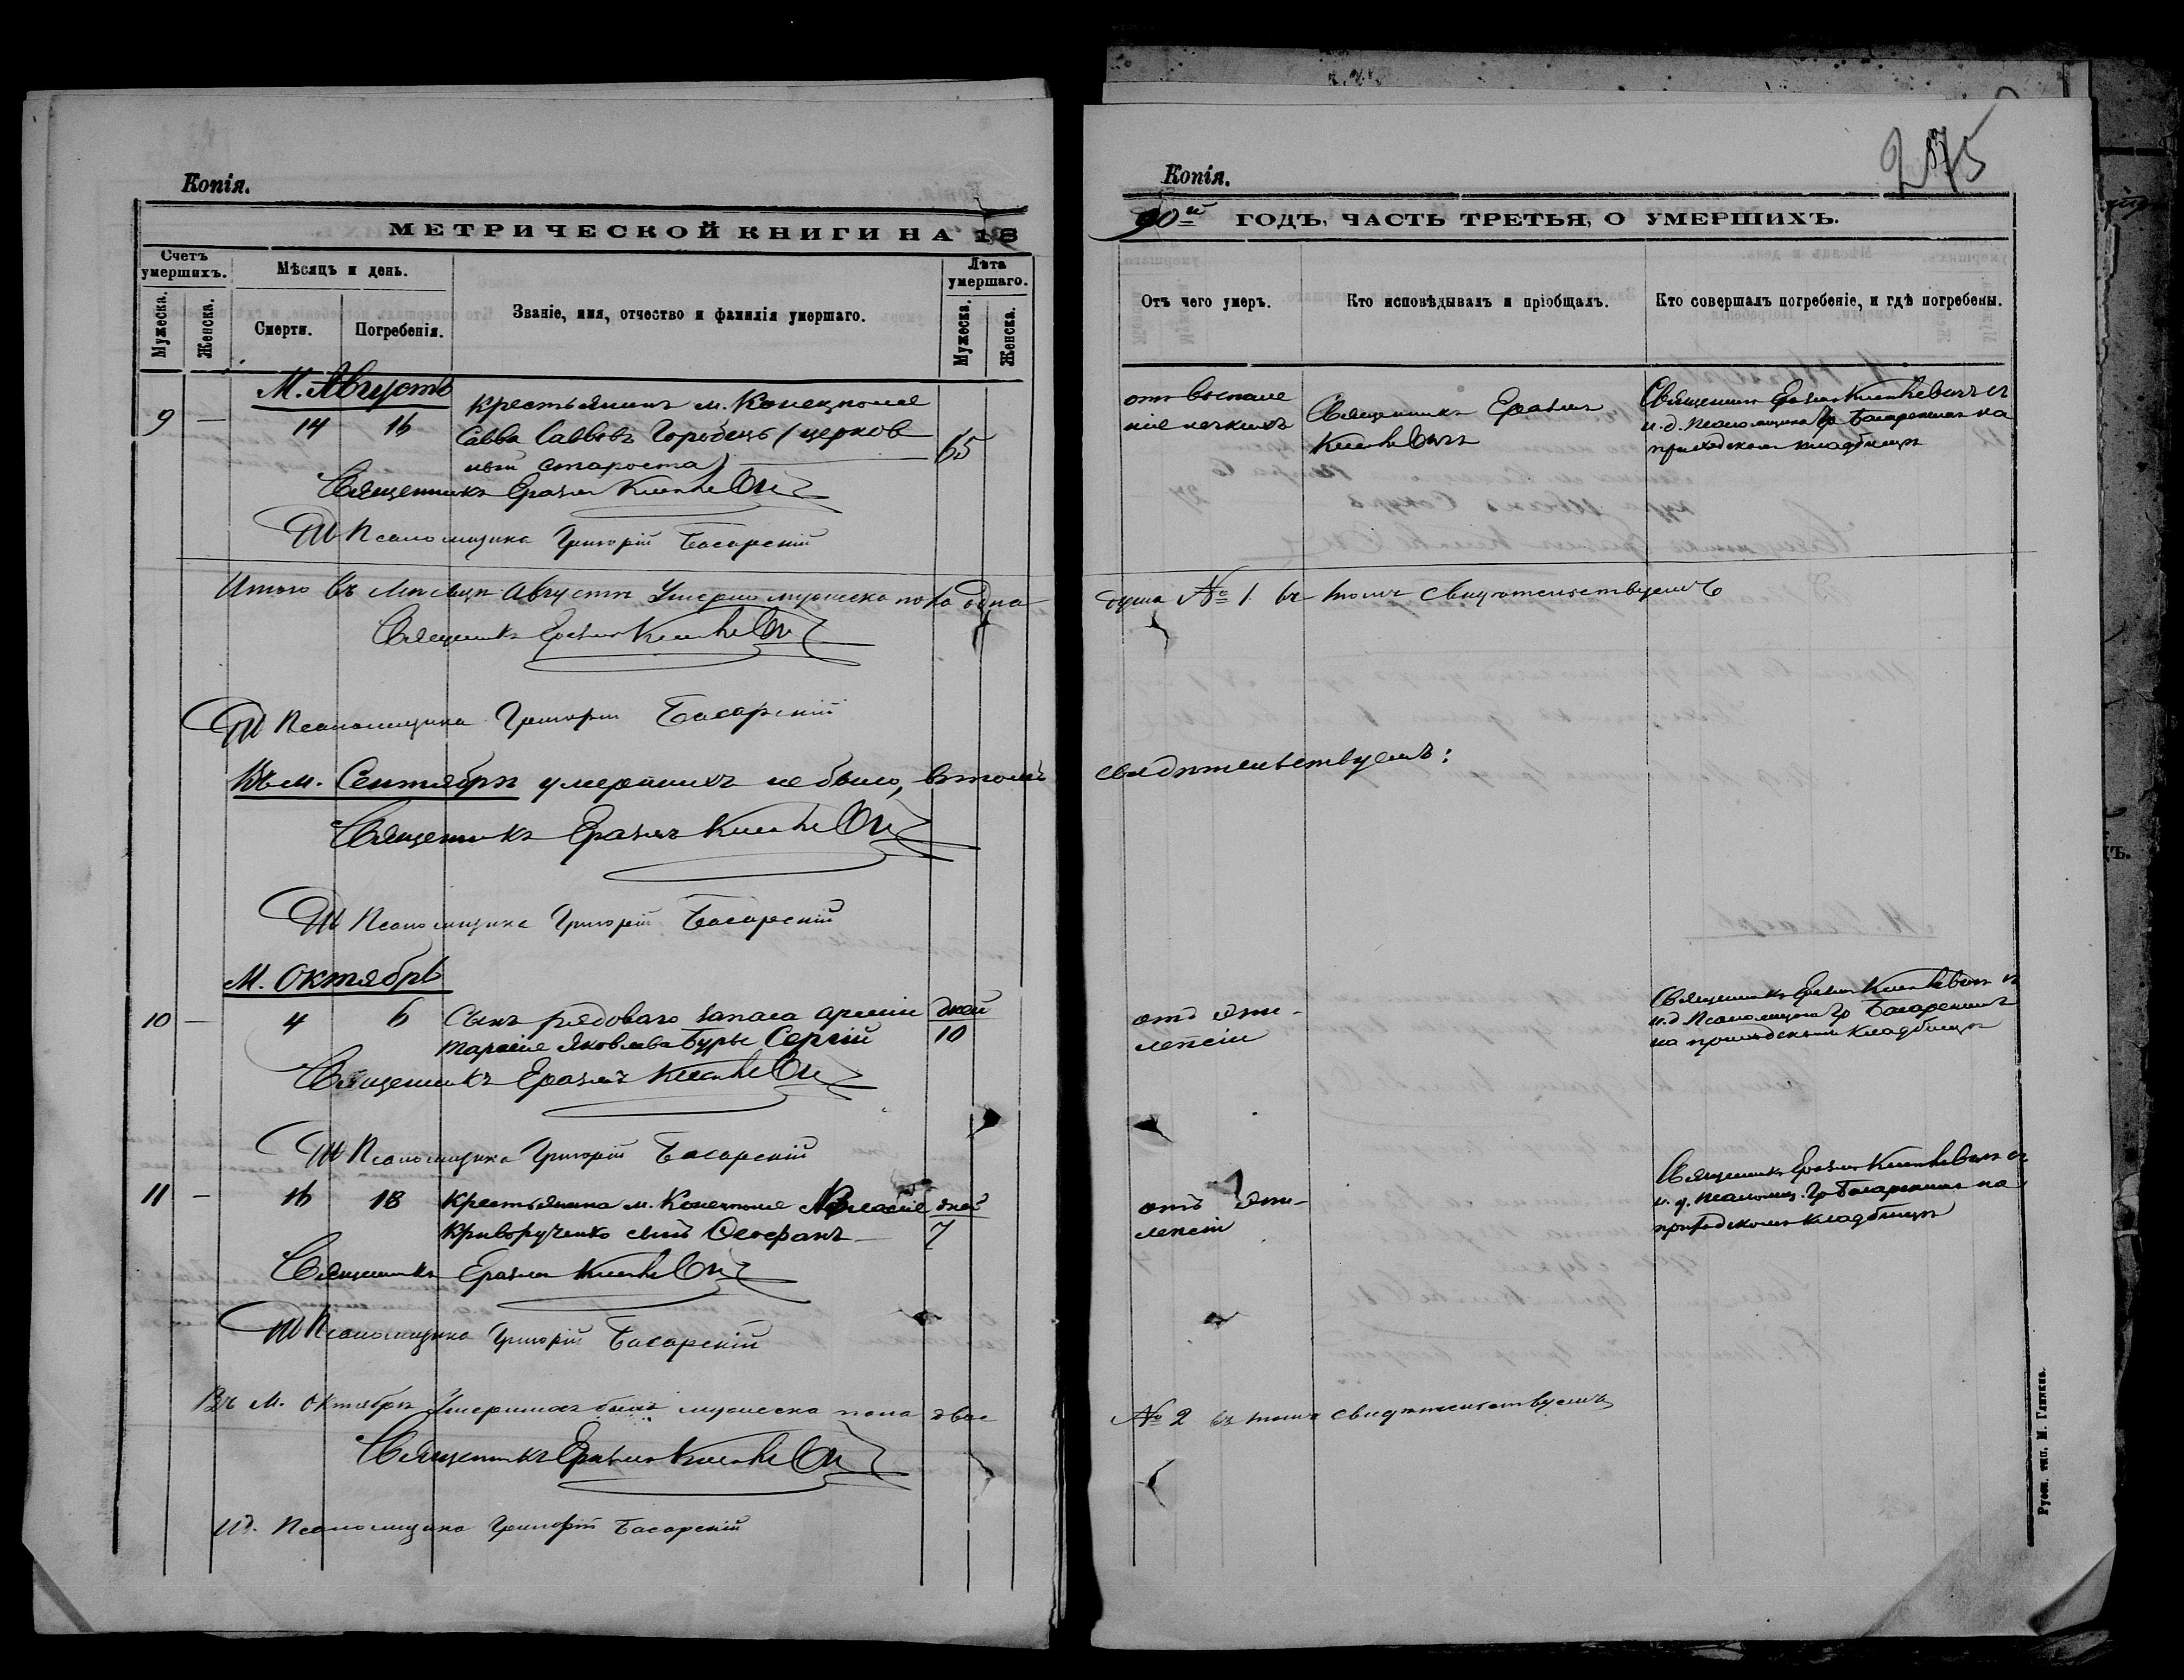 Копія.
МЕТРИЧЕСКОЙ КНИГИ НА 18
Счетъ умершихъ.
Мужеска.
Женска.
Мѣсяцъ и день.
Смерти.
Погребенія.
Званіе, имя, отчество и фамилія умершаго.
Лѣта умершаго.
Мужеска.
Женска.
М. Августъ
9 — 14 16 Крестьянинъ м. Конецполя
Савва Саввовъ Горобецъ (церков
ный староста) 65
Священникъ Еразмъ
Псаломщика Григорій Басарскій
Итого въ Мѣсяцѣ Августѣ Умерло мужеска пола одна
Священникъ Еразмъ
Псаломщика Григорій Басарскій
Въ м. Сентябрѣ умершихъ не было, въ томъ
Священникъ Еразмъ
Псаломщика Григорій Басарскій
М. Октябрь
10 — 4 6 Сынъ рядоваго запаса арміи дней
Тарасія Яковлева Буры Сергій 10
Священникъ Еразмъ
Псаломщика Григорій Басарскій
11 — 16 18 Крестьянина м. Конецполя дней
Криворученко сынъ Ѳеофанъ 7
Священникъ Еразмъ
Псаломщика Григорій Басарскій
Въ М. Октябрѣ Умершихъ было мужеска пола двое
Священникъ Еразмъ
ид. Псаломщика Григорій Басарскій
Копія.
275
90й ГОДЪ, ЧАСТЬ ТРЕТЬЯ, О УМЕРШИХЪ.
Отъ чего умеръ.
Кто исповѣдывалъ и пріобщалъ.
Кто совершалъ погребеніе, и гдѣ погребены.
отъ воспале
нія легкихъ
Священникъ Еразмъ
Священникъ Еразмъ и
и.д. Псаломщика Гр Басарскимъ на
приходскомъ кладбищѣ
душа № 1 въ томъ свидѣтельствуемъ
свидѣтельствуемъ:
отъ эпи-
лепсіи
Священникъ Еразмъ и
и.д Псаломщика Гр Басарскимъ
на приходскомъ кладбищѣ
отъ эпи-
лепсіи
Священникъ Еразмъ и
и. д. псаломщ. Гр Басарскимъ на
приходскомъ кладбищѣ
№ 2 въ томъ свидѣтельствуемъ
тип. М. Ганкина.